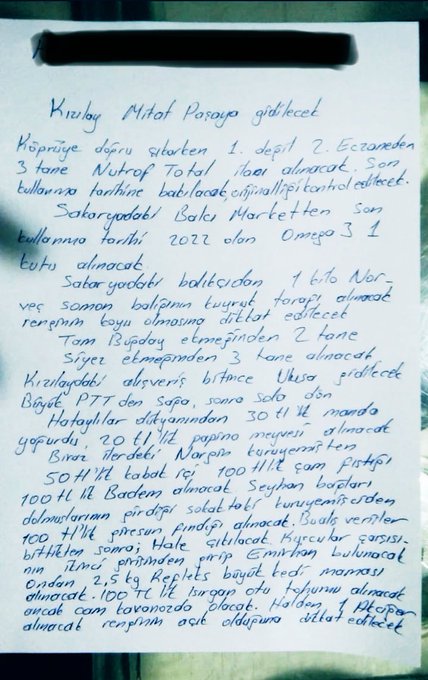 Kızılay Mitat Paşaya gidilecek
Köprüye doğru çıkarken 1. değil 2. Eczaneden
3 tane Nutrof Total ilacı alınacak. Son
kullanma tarihine bakılacak, orijinalliği kontrol edilecek.
Sakaryadaki Balcı Marketten son
kullanma tarihi 2022 olan Omega 3 1
kutu alınacak.
Sakaryadaki balıkçıdan 1 kilo Nor-
veç somon balığının kuyruk tarafı alınacak
renginin koyu olmasına dikkat edilecek
Tam Buğday ekmeğinden 2 tane
Siyez ekmeğinden 3 tane alınacak
Kızılaydaki alışveriş bitince Ulusa gidilecek
Büyük PTT den Sapa, sonra sola dön
Hataylılar dükyanından 30 tl lik manda
yoğurdu, 20 tl lik papina meyvesi alınacak
Biraz ilerdeki Narpın kuruyemişten
50 tl'lik kabak içi 100 tl lik çam fıstığı
100 TL lik Badem alınacak Seyhan bağları
dolmuşlarının girdiği sokaktaki kuruyemişciden
100 tl'lik giresun fındığı alınacak. Bu alış verişler
bittikten sonra; Hale çıkılacak. Kuşcular çarşısı-
nın ikinci girişinden girip Emirhan bulunacak
Ondan 2,5 kg Reflets büyük kedi maması
alınacak. 100 TL lik ısırgan otu tohumu alınacak
ancak cam kavanozda olacak. Halden 1
alınacak renginin açık olduğuna dikkat edilecek